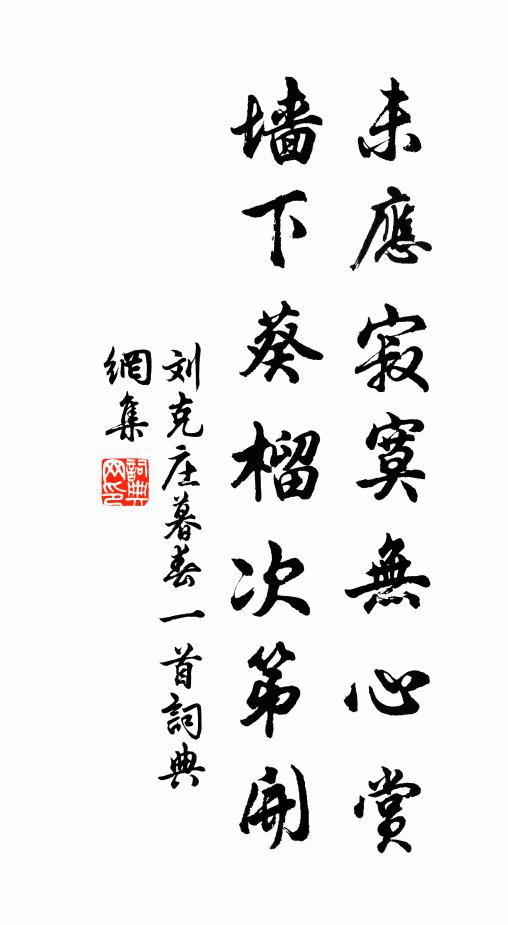 未應寂寞無心賞
墙下葵榴次第開
刘克庄暮春一首詞典
網集
詞典网印